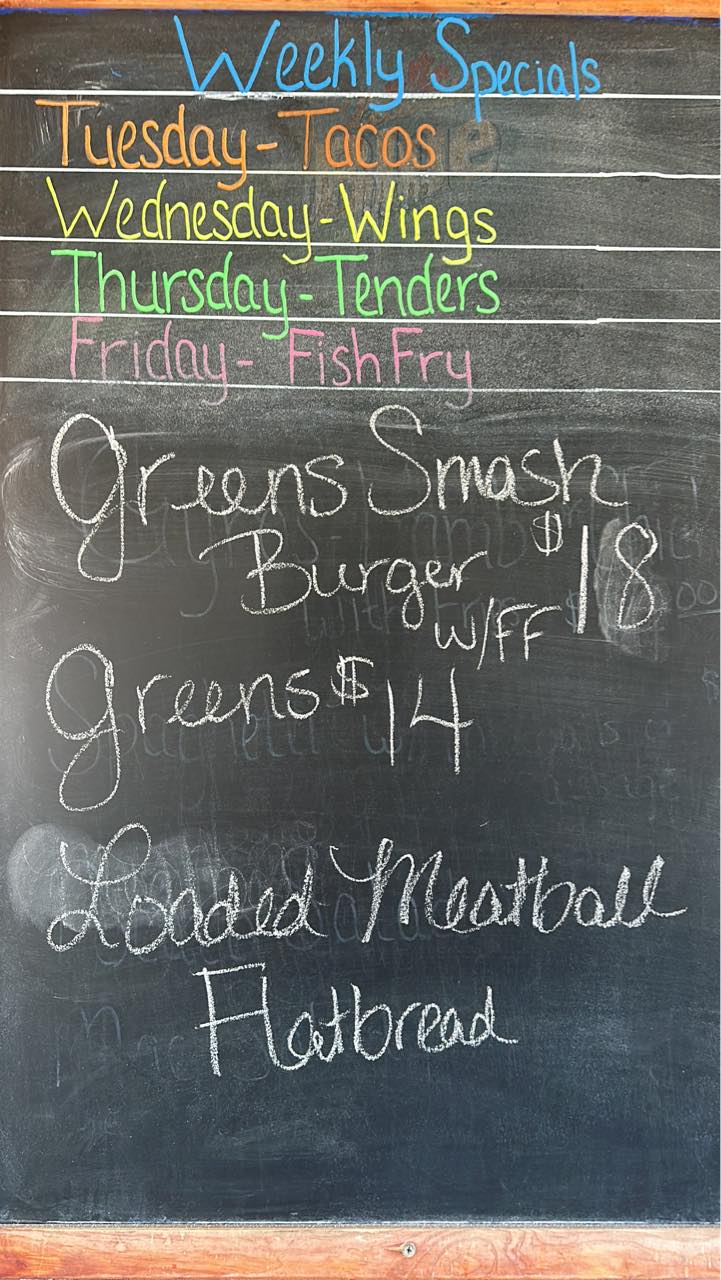 Weekly Specials
Tuesday - Tacos
Wednesday - Wings
Thursday - Tenders
Friday - Fish Fry
Greens Smash
Burger $18
W/FF
Greens $14
Loaded Meatball
Flatbread